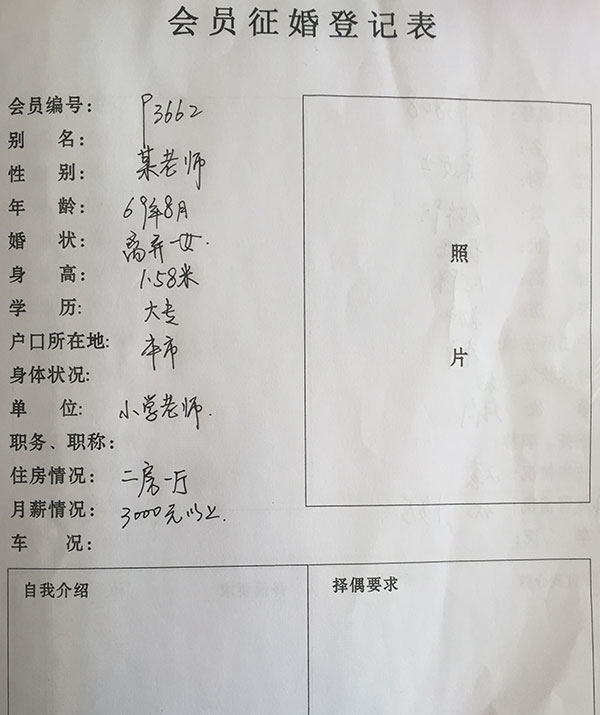 会员征婚登记表
会员编号： P3662
别 名：
性 别： 某老师
年 龄： 69年8月
婚 状： 离异一女.
身 高： 1.58米
学 历: 大专
户口所在地: 本市
身体状况:
单 位: 小学老师.
职务、职称：
住房情况： 二房一厅
月薪情况： 3000元以上.
车 况：
照
片
自我介绍
择偶要求